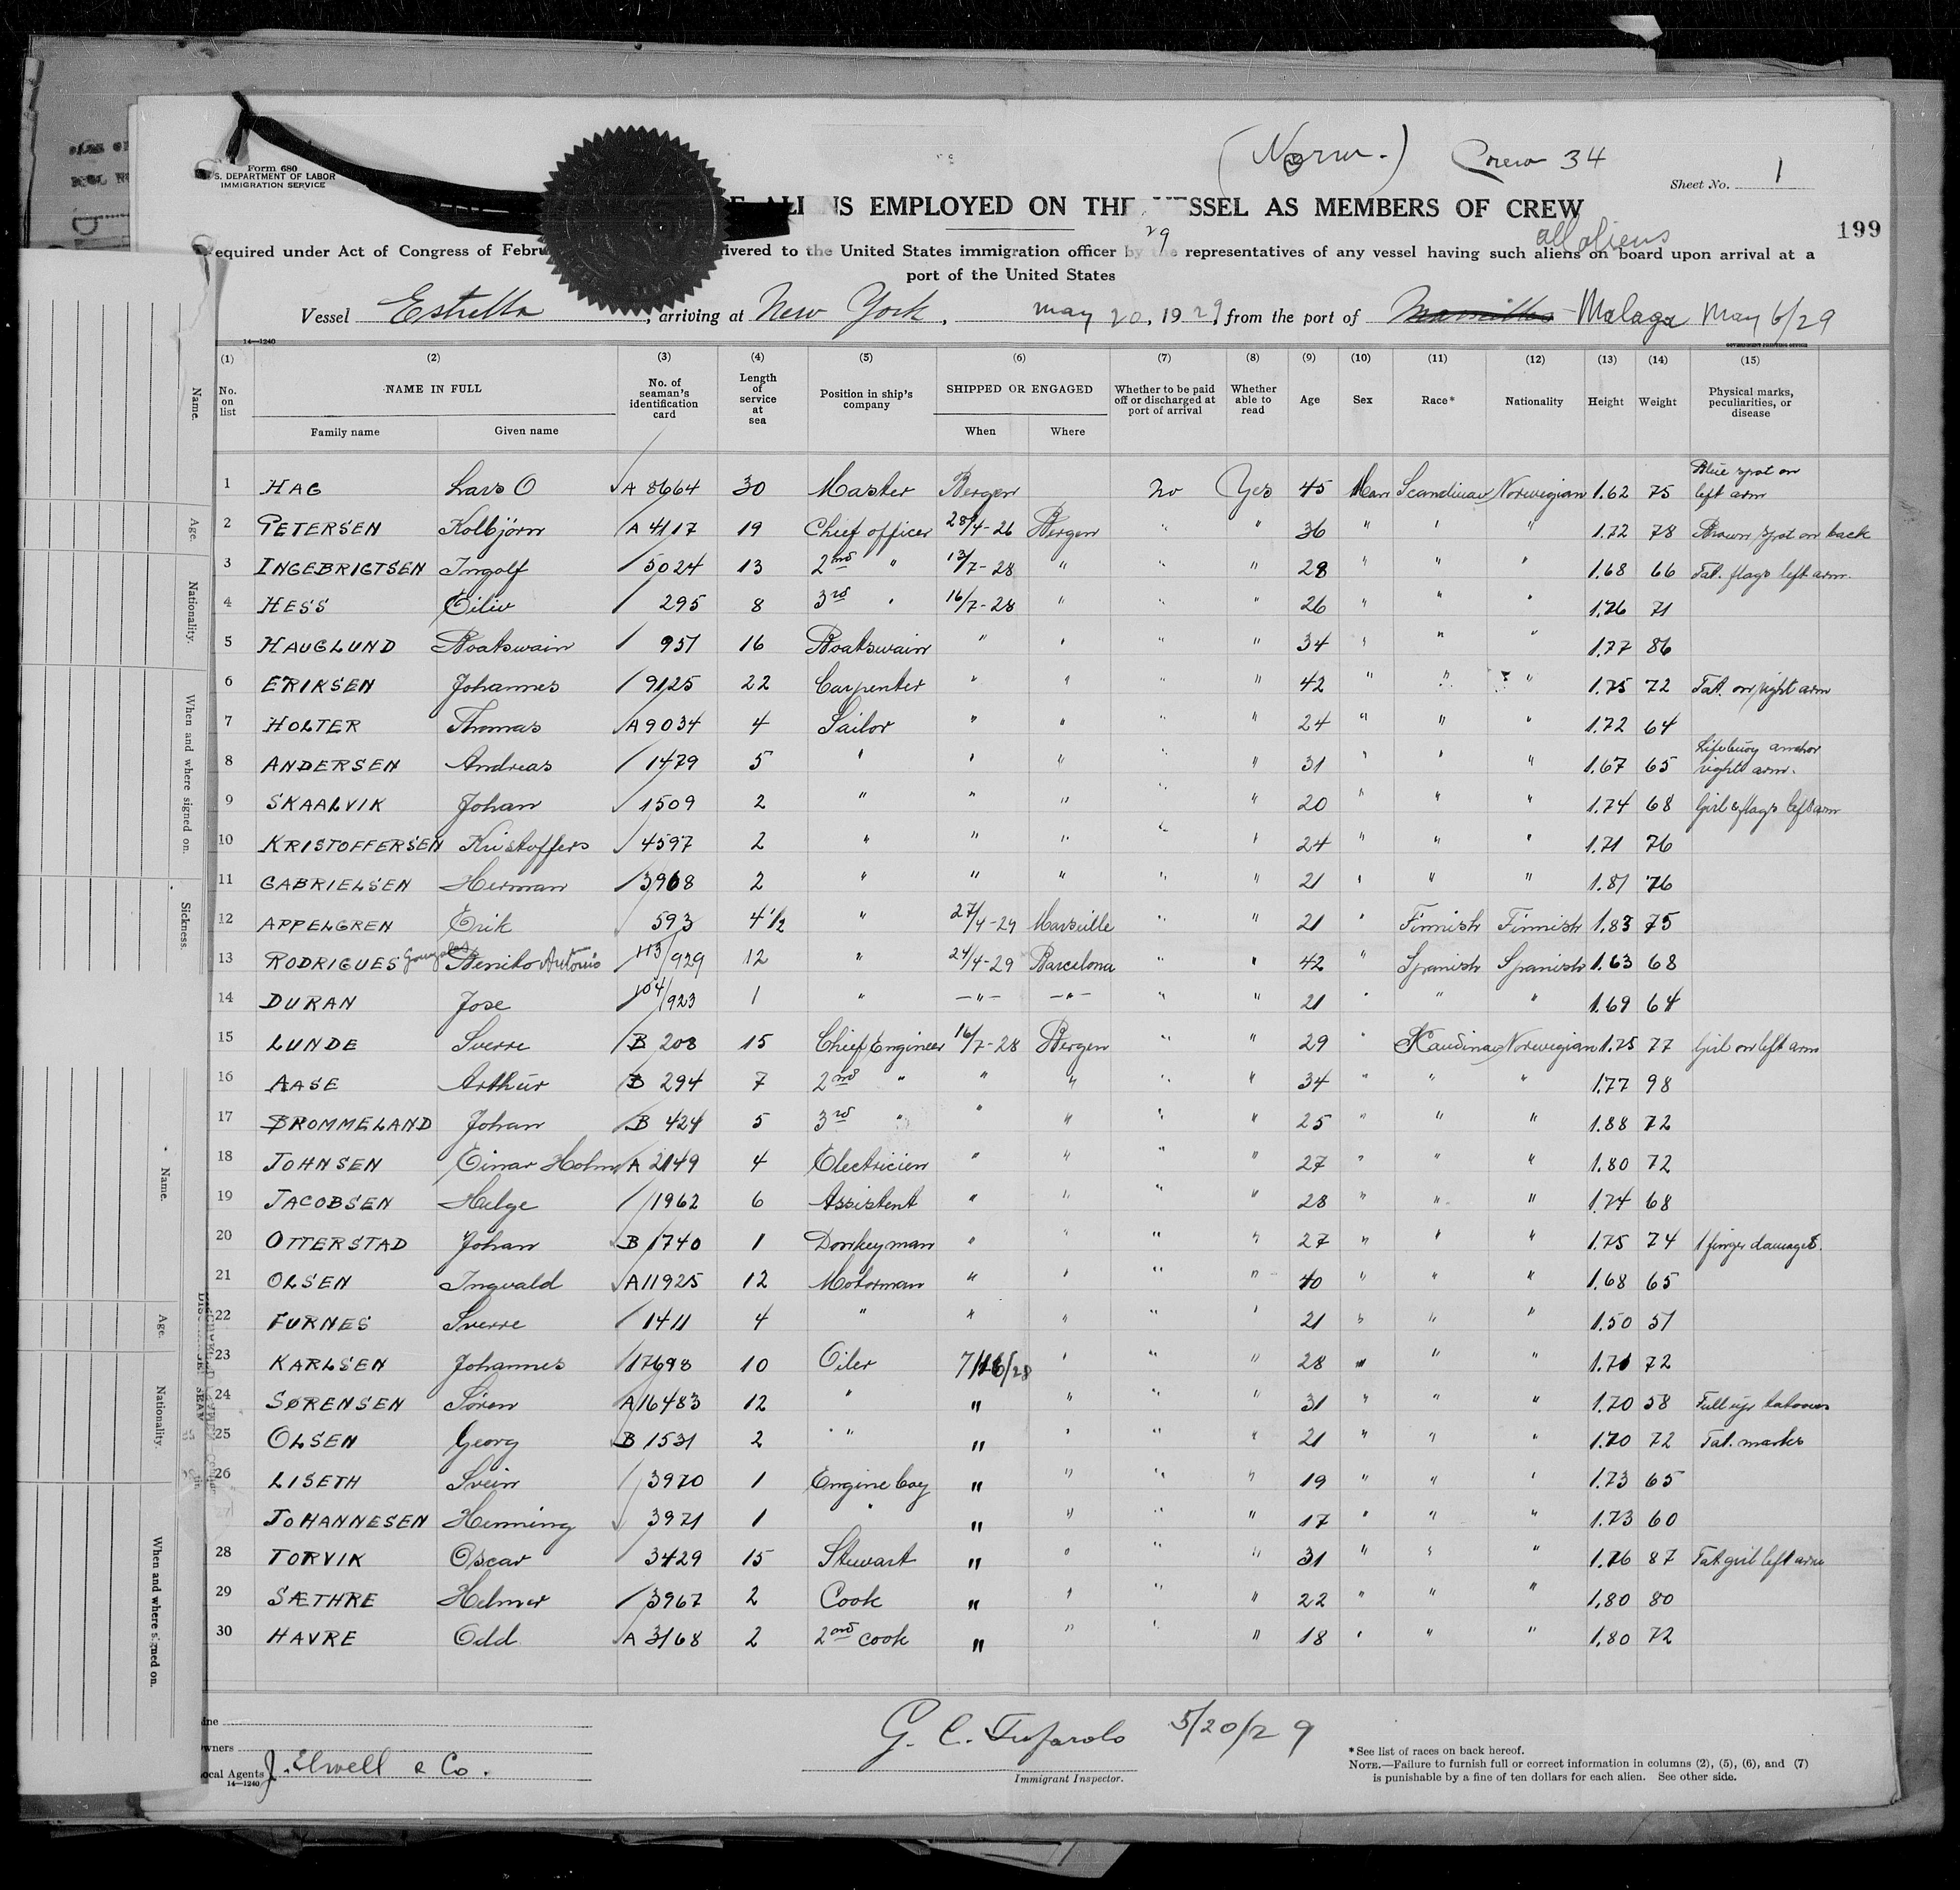 (Norw.) Crew 34
Form 680
S. DEPARTMENT OF LABOR
IMMIGRATION SERVICE
Sheet No. 1
ALIENS EMPLOYED ON THE VESSEL AS MEMBERS OF CREW
199
all aliens
29
equired under Act of Congress of Febru ivered to the United States immigration officer by the representatives of any vessel having such aliens on board upon arrival at a
port of the United States
Vessel Estrella, arriving at New York, May 20, 1929, from the port of Malaga May 6/29
14—1240
(1) (2) (3) (4) (5) (6) (7) (8) (9) (10) (11) (12) (13) (14) (15)
No. on list NAME IN FULL No. of seaman's identification card Length of service at sea Position in ship's company SHIPPED OR ENGAGED Whether to be paid off or discharged at port of arrival Whether able to read Age Sex Race* Nationality Height Weight Physical marks, peculiarities, or disease
Family name Given name When Where
1 HAG Lars O A 8664 30 Master Bergen No Yes 45 Man Scandinav Norwegian 1.62 75 Blue spot on left arm
2 PETERSEN Kolbjörn A 4117 19 Chief officer 28/4-26 Bergen " " 36 " " " 1.72 78 Brown spot on back
3 INGEBRIGTSEN Ingolf 5024 13 2nd " 13/7-28 " " " 28 " " " 1.68 66 Tat. flags left arm.
4 HESS Eiliv 295 8 3rd " 16/7-28 " " " 26 " " " 1.76 71
5 HAUGLUND Boatswain 951 16 Boatswain " " " " 34 " " " 1.77 86
6 ERIKSEN Johannes 9125 22 Carpenter " " " " 42 " " " 1.75 72 Tat. on right arm
7 HOLTER Thomas A 9034 4 Sailor " " " " 24 " " " 1.72 64
8 ANDERSEN Andreas 1479 5 " " " " " 31 " " " 1.67 65 Lifebuoy anchor right arm.
9 SKAALVIK Johan 1509 2 " " " " " 20 " " " 1.74 68 Girl & flags left arm
10 KRISTOFFERSEN Kristoffers 4597 2 " " " " " 24 " " " 1.71 76
11 GABRIELSEN Herman 3968 2 " " " " " 21 " " " 1.81 76
12 APPELGREN Erik 593 4 1/2 " 27/4-29 Marseille " " 21 " Finnish Finnish 1.83 75
13 RODRIGUES Gonzales Beniko Antonio 113/929 12 " 24/4-29 Barcelona " " 42 " Spanish Spanish 1.63 68
14 DURAN Jose 104/923 1 " —"— —"— " " 21 " " " 1.69 64
15 LUNDE Sverre B 208 15 Chief Engineer 16/7-28 Bergen " " 29 " Skandinav Norwegian 1.75 77 Girl on left arm
16 AASE Arthur B 294 7 2nd " " " " " 34 " " " 1.77 98
17 BROMMELAND Johan B 424 5 3rd " " " " " 25 " " " 1.88 72
18 JOHNSEN Einar Holm A 2149 4 Electricien " " " " 27 " " " 1.80 72
19 JACOBSEN Helge 1962 6 Assistent " " " " 28 " " " 1.74 68
20 OTTERSTAD Johan B 1740 1 Donkeyman " " " " 27 " " " 1.75 74 1 finger damaged.
21 OLSEN Ingvald A 11925 12 Motorman " " " " 40 " " " 1.68 65
22 FURNES Sverre 1411 4 " " " " " 21 " " " 1.50 51
23 KARLSEN Johannes 17698 10 Oiler 7/16/28 " " " 28 " " " 1.71 72
24 SØRENSEN Sören A 16483 12 " " " " " 31 " " " 1.70 58 Full up tatoous
25 OLSEN Georg B 1531 2 " " " " " 21 " " " 1.70 72 Tat. marks
26 LISETH Svein 3970 1 Engine boy " " " " 19 " " " 1.73 65
27 JOHANNESEN Henning 3971 1 " " " " " 17 " " " 1.73 60
28 TORVIK Oscar 3429 15 Stewart " " " " 31 " " " 1.76 87 Tat girl left arm
29 SÆTHRE Helmer 3967 2 Cook " " " " 22 " " " 1.80 80
30 HAVRE Odd A 3168 2 2nd cook " " " " 18 " " " 1.80 72
ine
wners
ocal Agents J. Elwell & Co.
14—1240
G. C. 5/20/29
Immigrant Inspector.
*See list of races on back hereof.
NOTE.—Failure to furnish full or correct information in columns (2), (5), (6), and (7)
is punishable by a fine of ten dollars for each alien. See other side.
Name.
Age.
Nationality.
When and where signed on.
Sickness.
Name.
Age.
Nationality.
When and where signed on.